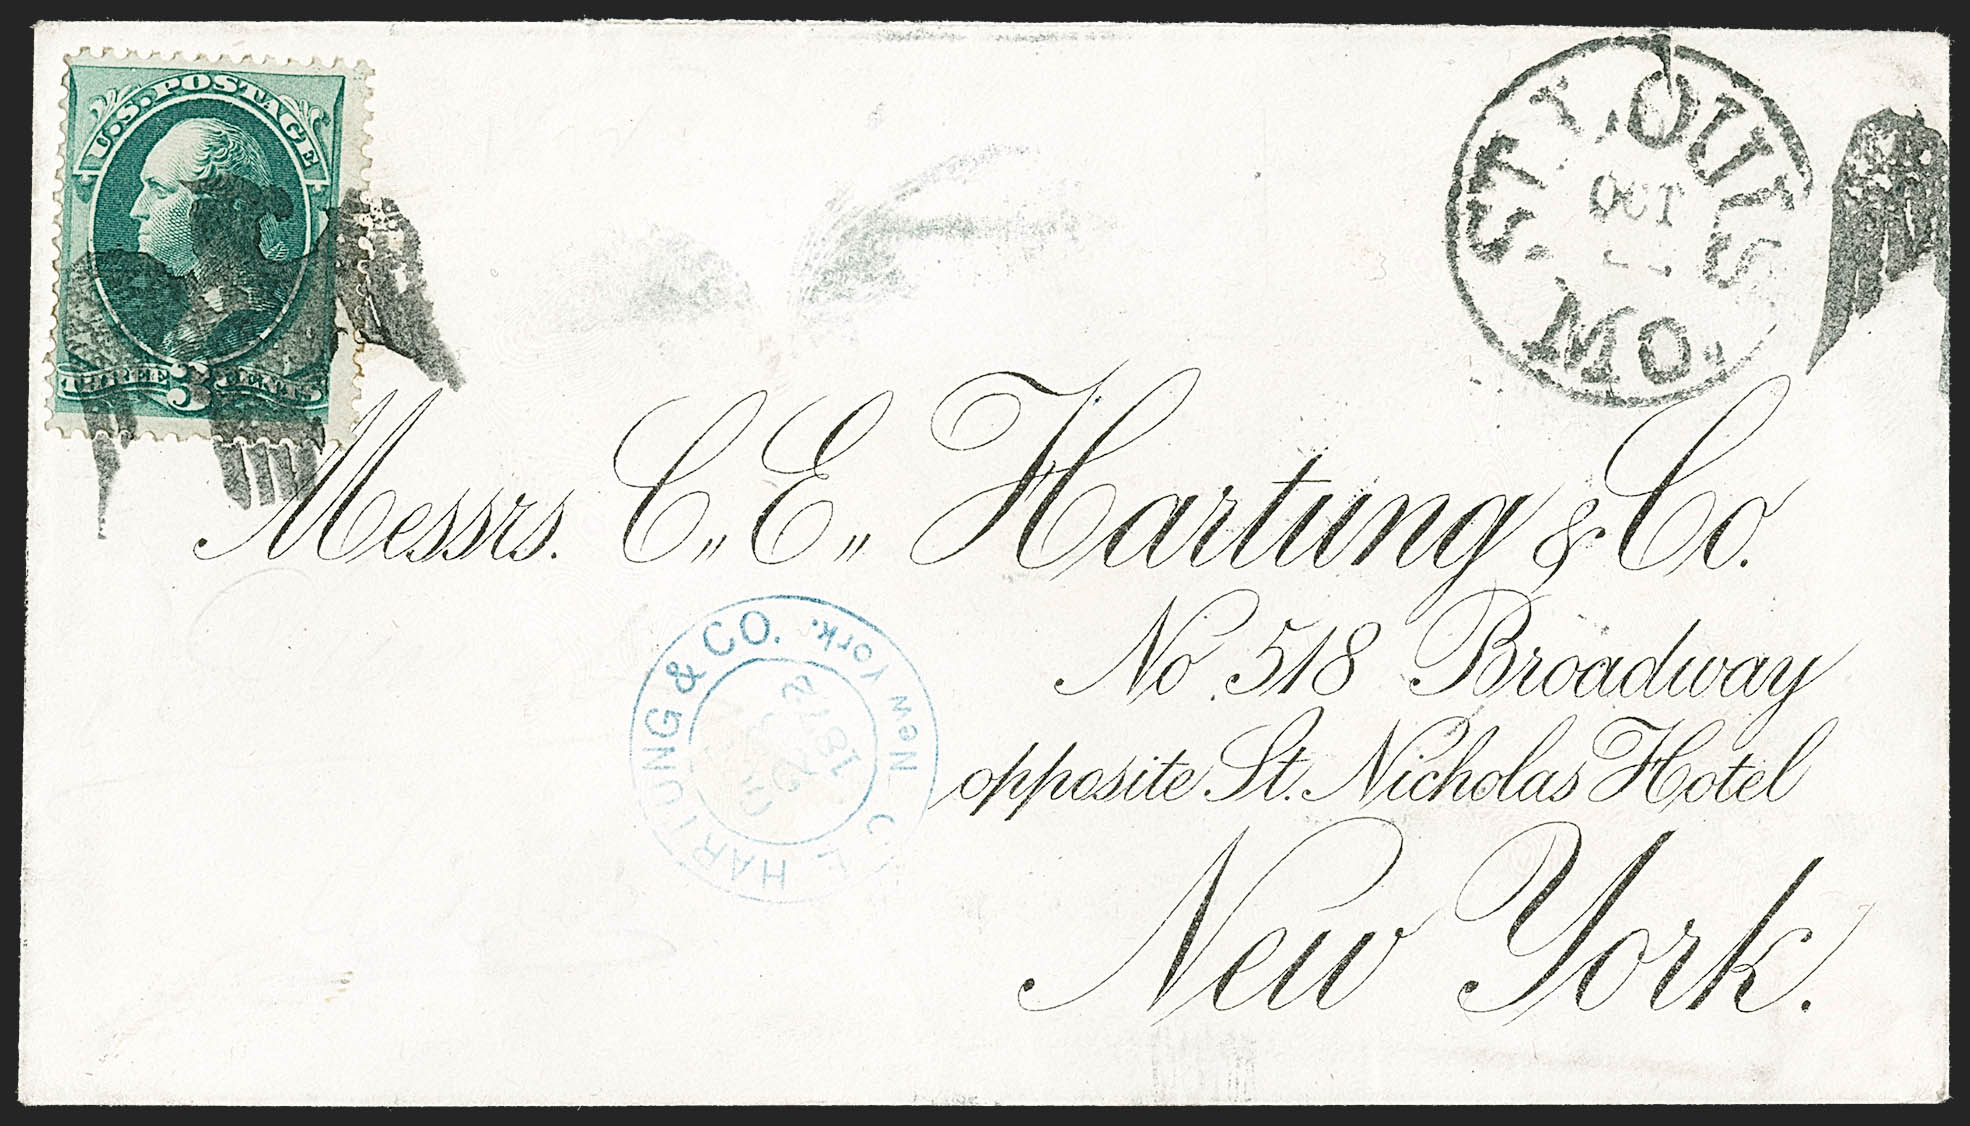 U.S. POSTAGE
THREE 3 CENTS
ST. LOUIS
OCT
MO.
Messrs. C,, E,, Hartung & Co.
No. 518 Broadway
opposite St. Nicholas Hotel
New York.
C. E. HARTUNG & CO.
New York.
1872